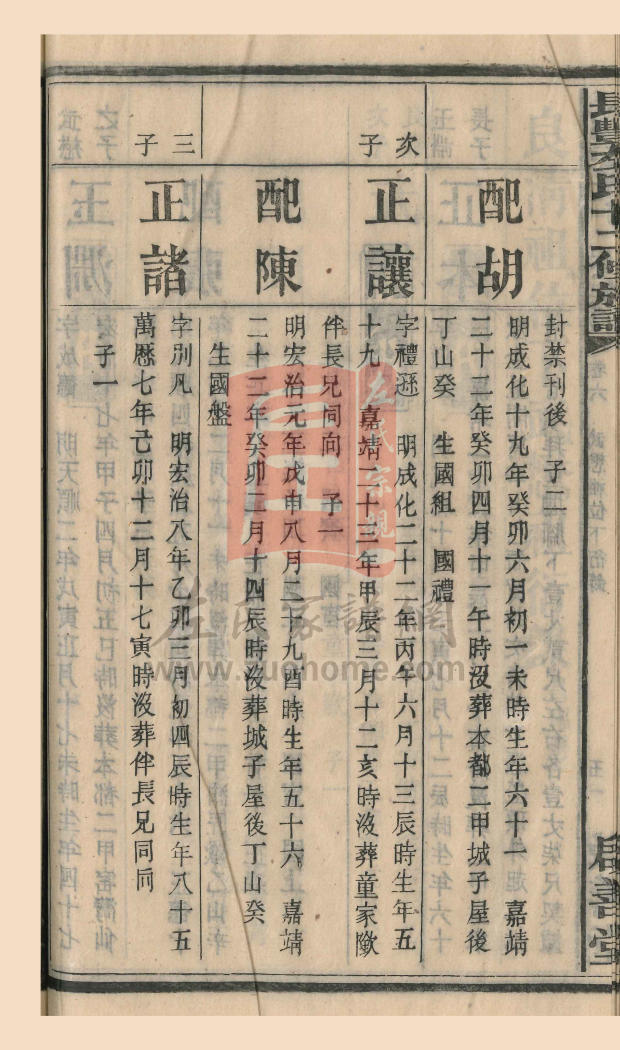 長豐左氏十二修族譜
卷六
五一
啟善堂
封禁刊後　子二
配胡
明成化十九年癸卯六月初一未時生年六十一　嘉靖
二十二年癸卯四月十一午時沒葬本都二甲城子屋後
丁山癸　生國組　國禮
次子
正讓
字禮遜　明成化二十二年丙午六月十三辰時生年五
十九　嘉靖二十三年甲辰三月十二亥時沒葬童家
伴長兄同向　子一
配陳
明宏治元年戊申八月二十九酉時生年五十六　嘉靖
二十二年癸卯二月十四辰時沒葬城子屋後丁山癸
生國盤
三子
正諸
字別凡　明宏治八年乙卯三月初四辰時生年八十五
萬歷七年己卯十二月十七寅時沒葬伴長兄同向
子一
左氏宗親
左氏家譜網
www.zuohome.com